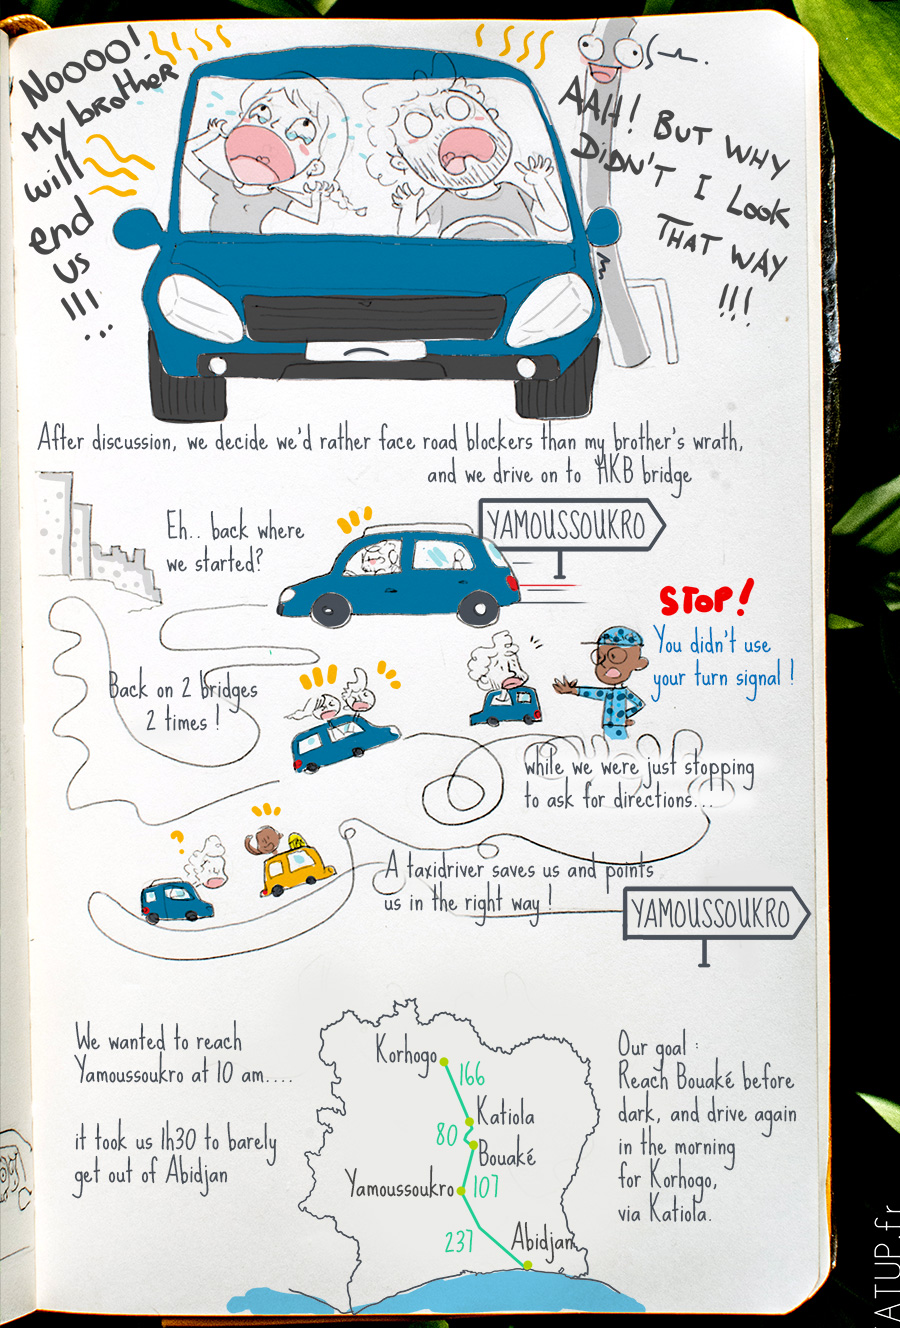 NOOOO!
My brother
will
end
us
!!!
...
AAH! BUT WHY
DIDN'T I LOOK
THAT WAY
!!!
After discussion, we decide we'd rather face road blockers than my brother's wrath,
and we drive on to HKB bridge
Eh.. back where
we started?
YAMOUSSOUKRO
STOP!
You didn't use
your turn signal !
Back on 2 bridges
2 times !
while we were just stopping
to ask for directions...
?
A taxidriver saves us and points
us in the right way !
YAMOUSSOUKRO
We wanted to reach
Yamoussoukro at 10 am....
it took us 1h30 to barely
get out of Abidjan
Korhogo
166
Katiola
80
Bouaké
Yamoussoukro
107
237
Abidjan
Our goal :
Reach Bouaké before
dark, and drive again
in the morning
for Korhogo,
via Katiola.
ATUP.fr